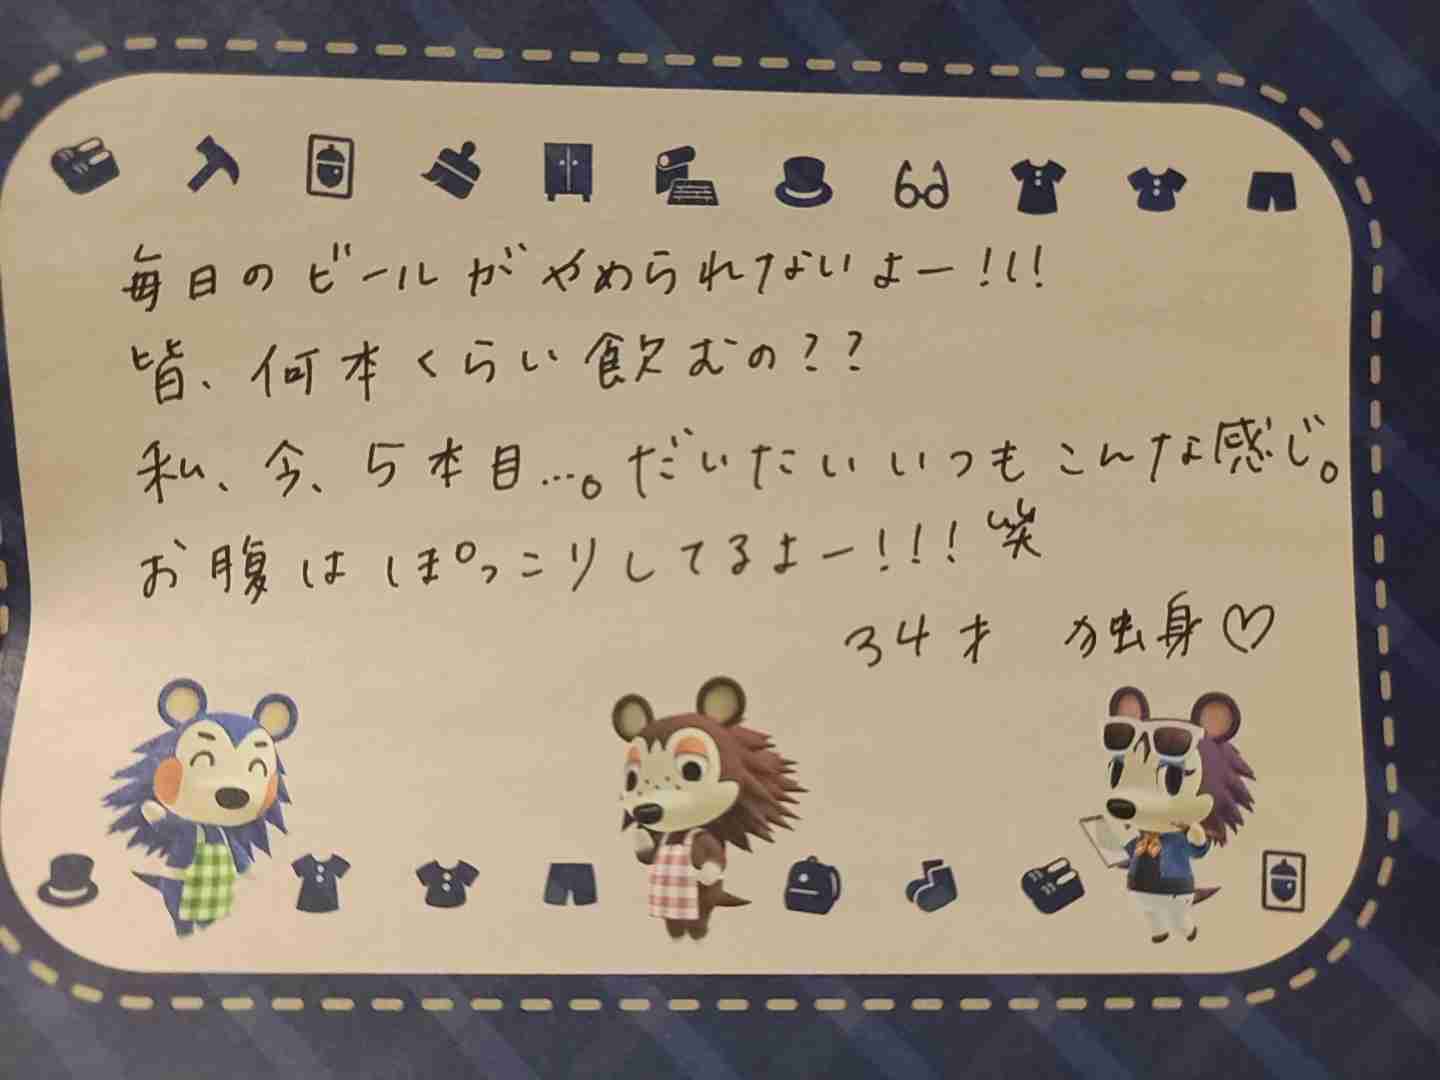 毎日のビールがやめられないよー!!!
皆、何本くらい飲むの??
私、今、5本目...。だいたいいつもこんな感じ。
お腹はぽっこりしてるよー!!!笑
34才 独身♡